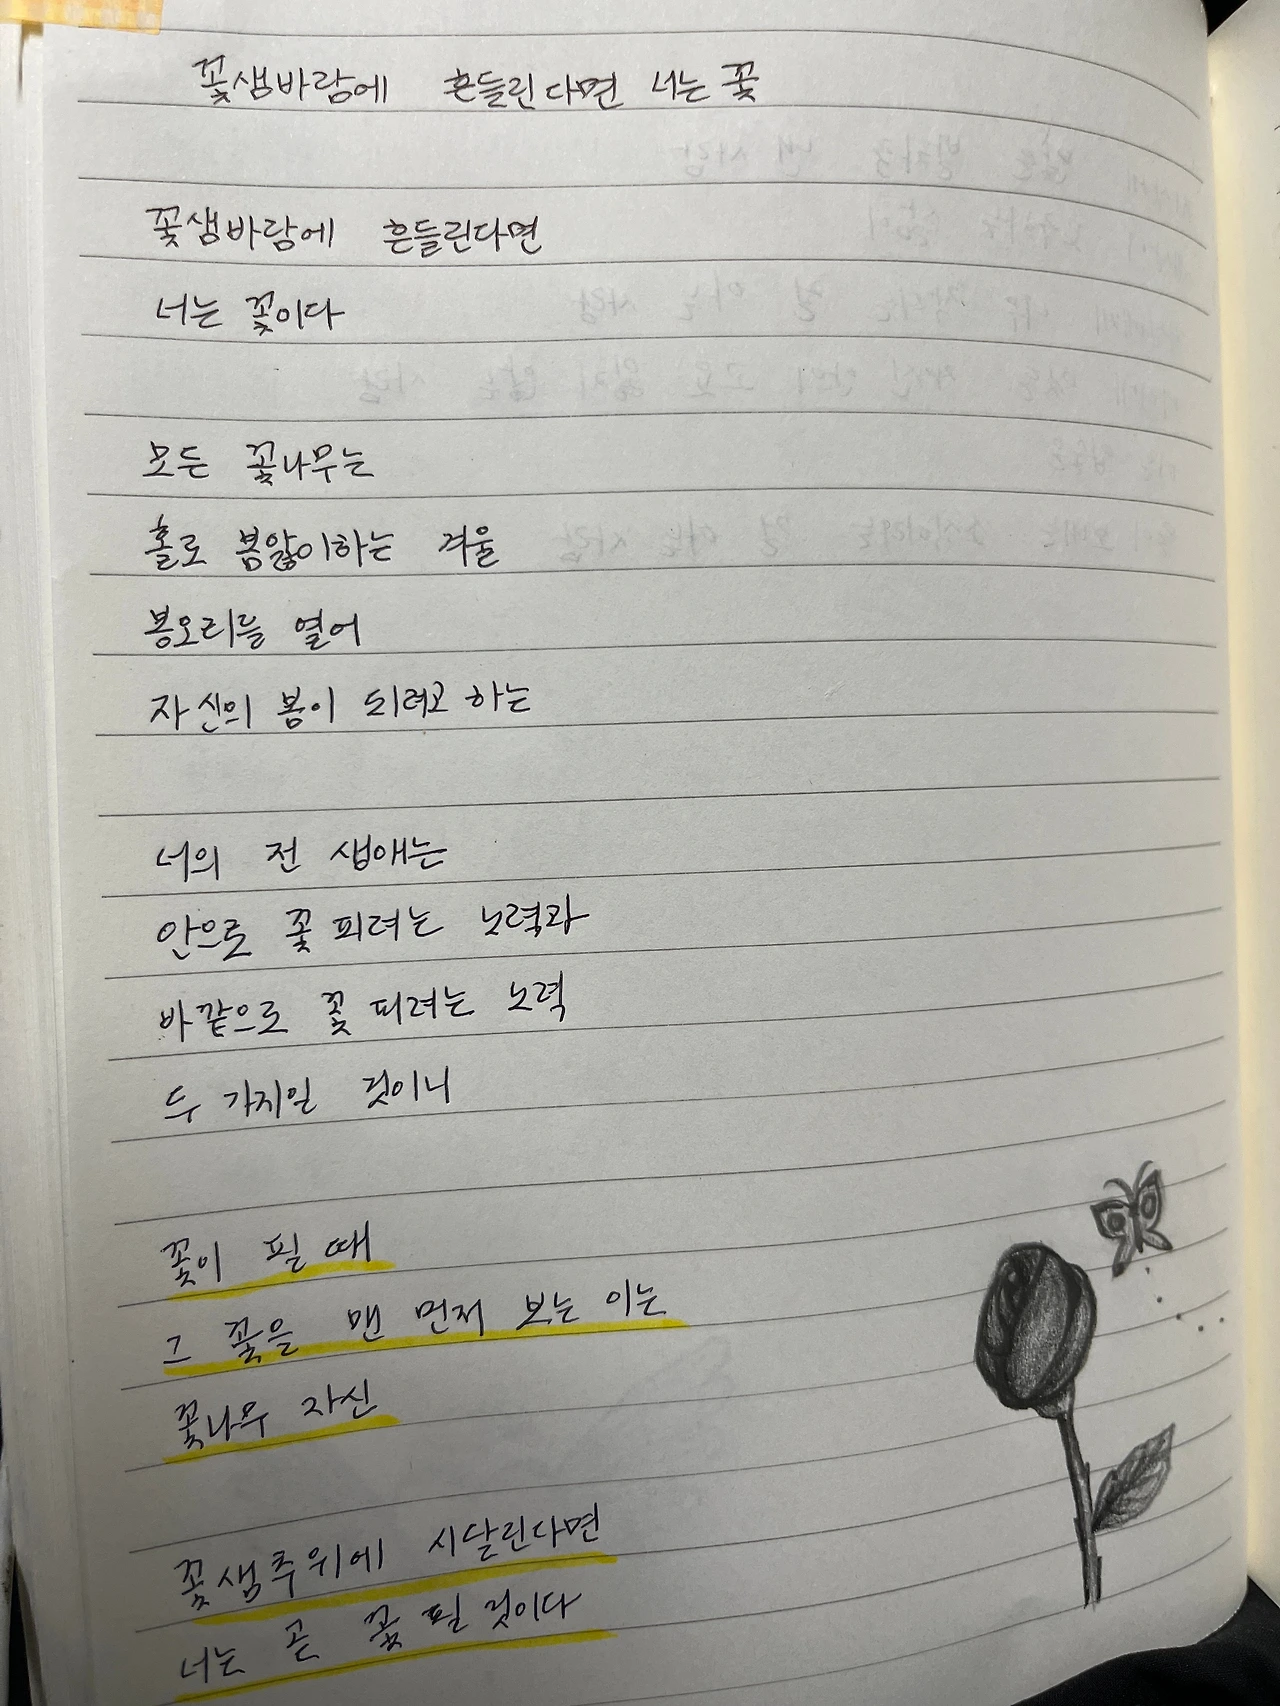 꽃샘바람에 흔들린다면 너는 꽃
꽃샘바람에 흔들린다면
너는 꽃이다
모든 꽃나무는
홀로 봄앓이하는 겨울
봉오리를 열어
자신의 봄이 되려고 하는
너의 전 생애는
안으로 꽃 피려는 노력과
바깥으로 꽃 피려는 노력
두 가지일 것이니
꽃이 필 때
그 꽃을 맨 먼저 보는 이는
꽃나무 자신
꽃샘추위에 시달린다면
너는 곧 꽃 필 것이다